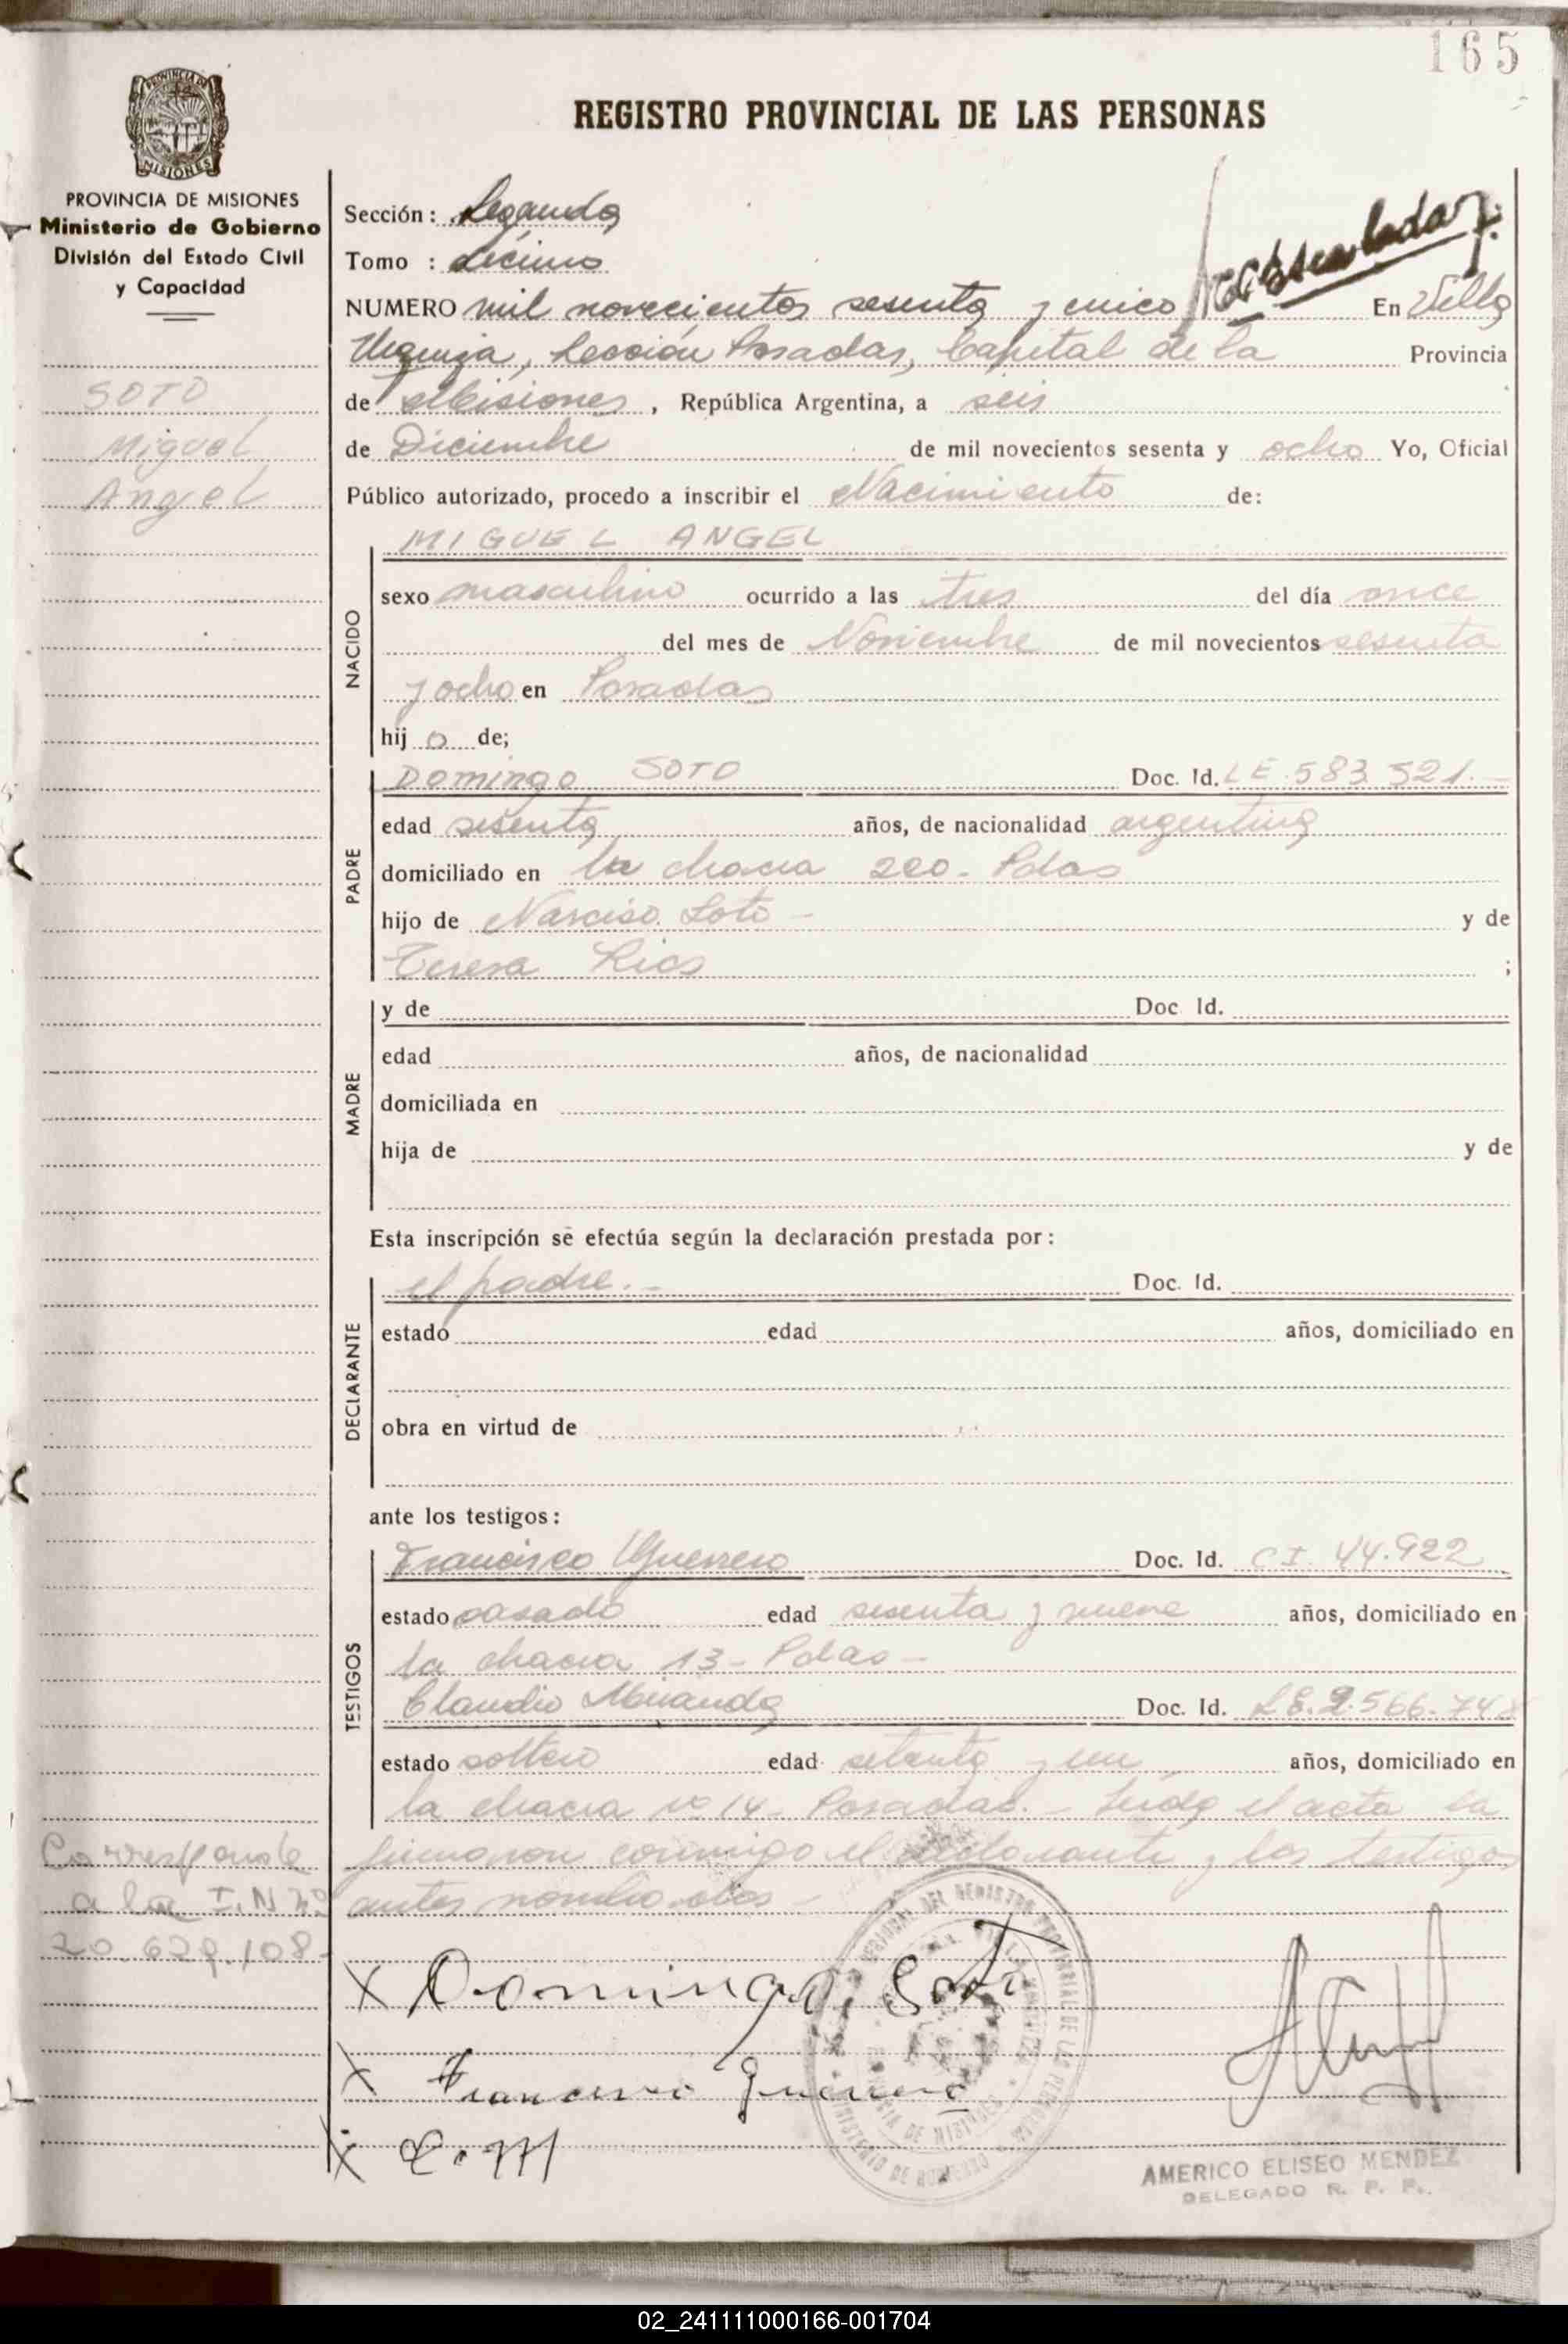 165
REGISTRO PROVINCIAL DE LAS PERSONAS
PROVINCIA DE MISIONES
MISIONES
PROVINCIA DE MISIONES
Ministerio de Gobierno
División del Estado Civil
y Capacidad
SOTO
Miguel
Angel
Sección: Segunda
Tomo : décimo
NUMERO mil novecientos sesenta y cinco En Villa
Urquiza, Sección Posadas, Capital de la Provincia
de Misiones, República Argentina, a seis
de Diciembre de mil novecientos sesenta y ocho Yo, Oficial
Público autorizado, procedo a inscribir el Nacimiento de:
NACIDO
MIGUEL ANGEL
sexo masculino ocurrido a las tres del día once
del mes de Noviembre de mil novecientos sesenta
y ocho en Posadas
hijo de;
PADRE
Domingo SOTO Doc. Id. LE 583.521.-
edad sesenta años, de nacionalidad argentina
domiciliado en la chacra 220- Pdas
hijo de Narciso Soto - y de
Teresa Rios ;
MADRE
y de Doc Id.
edad años, de nacionalidad
domiciliada en
hija de y de
Esta inscripción se efectúa según la declaración prestada por:
DECLARANTE
el padre.- Doc. Id.
estado edad años, domiciliado en
obra en virtud de
ante los testigos:
TESTIGOS
Francisco Guerrero Doc. Id. C.I. 44.922
estado casado edad sesenta y nueve años, domiciliado en
la chacra 13- Pdas-
Claudio Miranda Doc. Id. LE.2.566.748
estado soltero edad setenta y un años, domiciliado en
la chacra nº 14- Posadas.- Leida el acta la
firmaron conmigo el declarante y los testigos
antes nombrados-
Corresponde
a la I.N nº
20.629.108-
X Domingo Soto
X Francisco Guerrero
X C.M
AMERICO ELISEO MENDEZ
DELEGADO R. P. P.
02_241111000166-001704